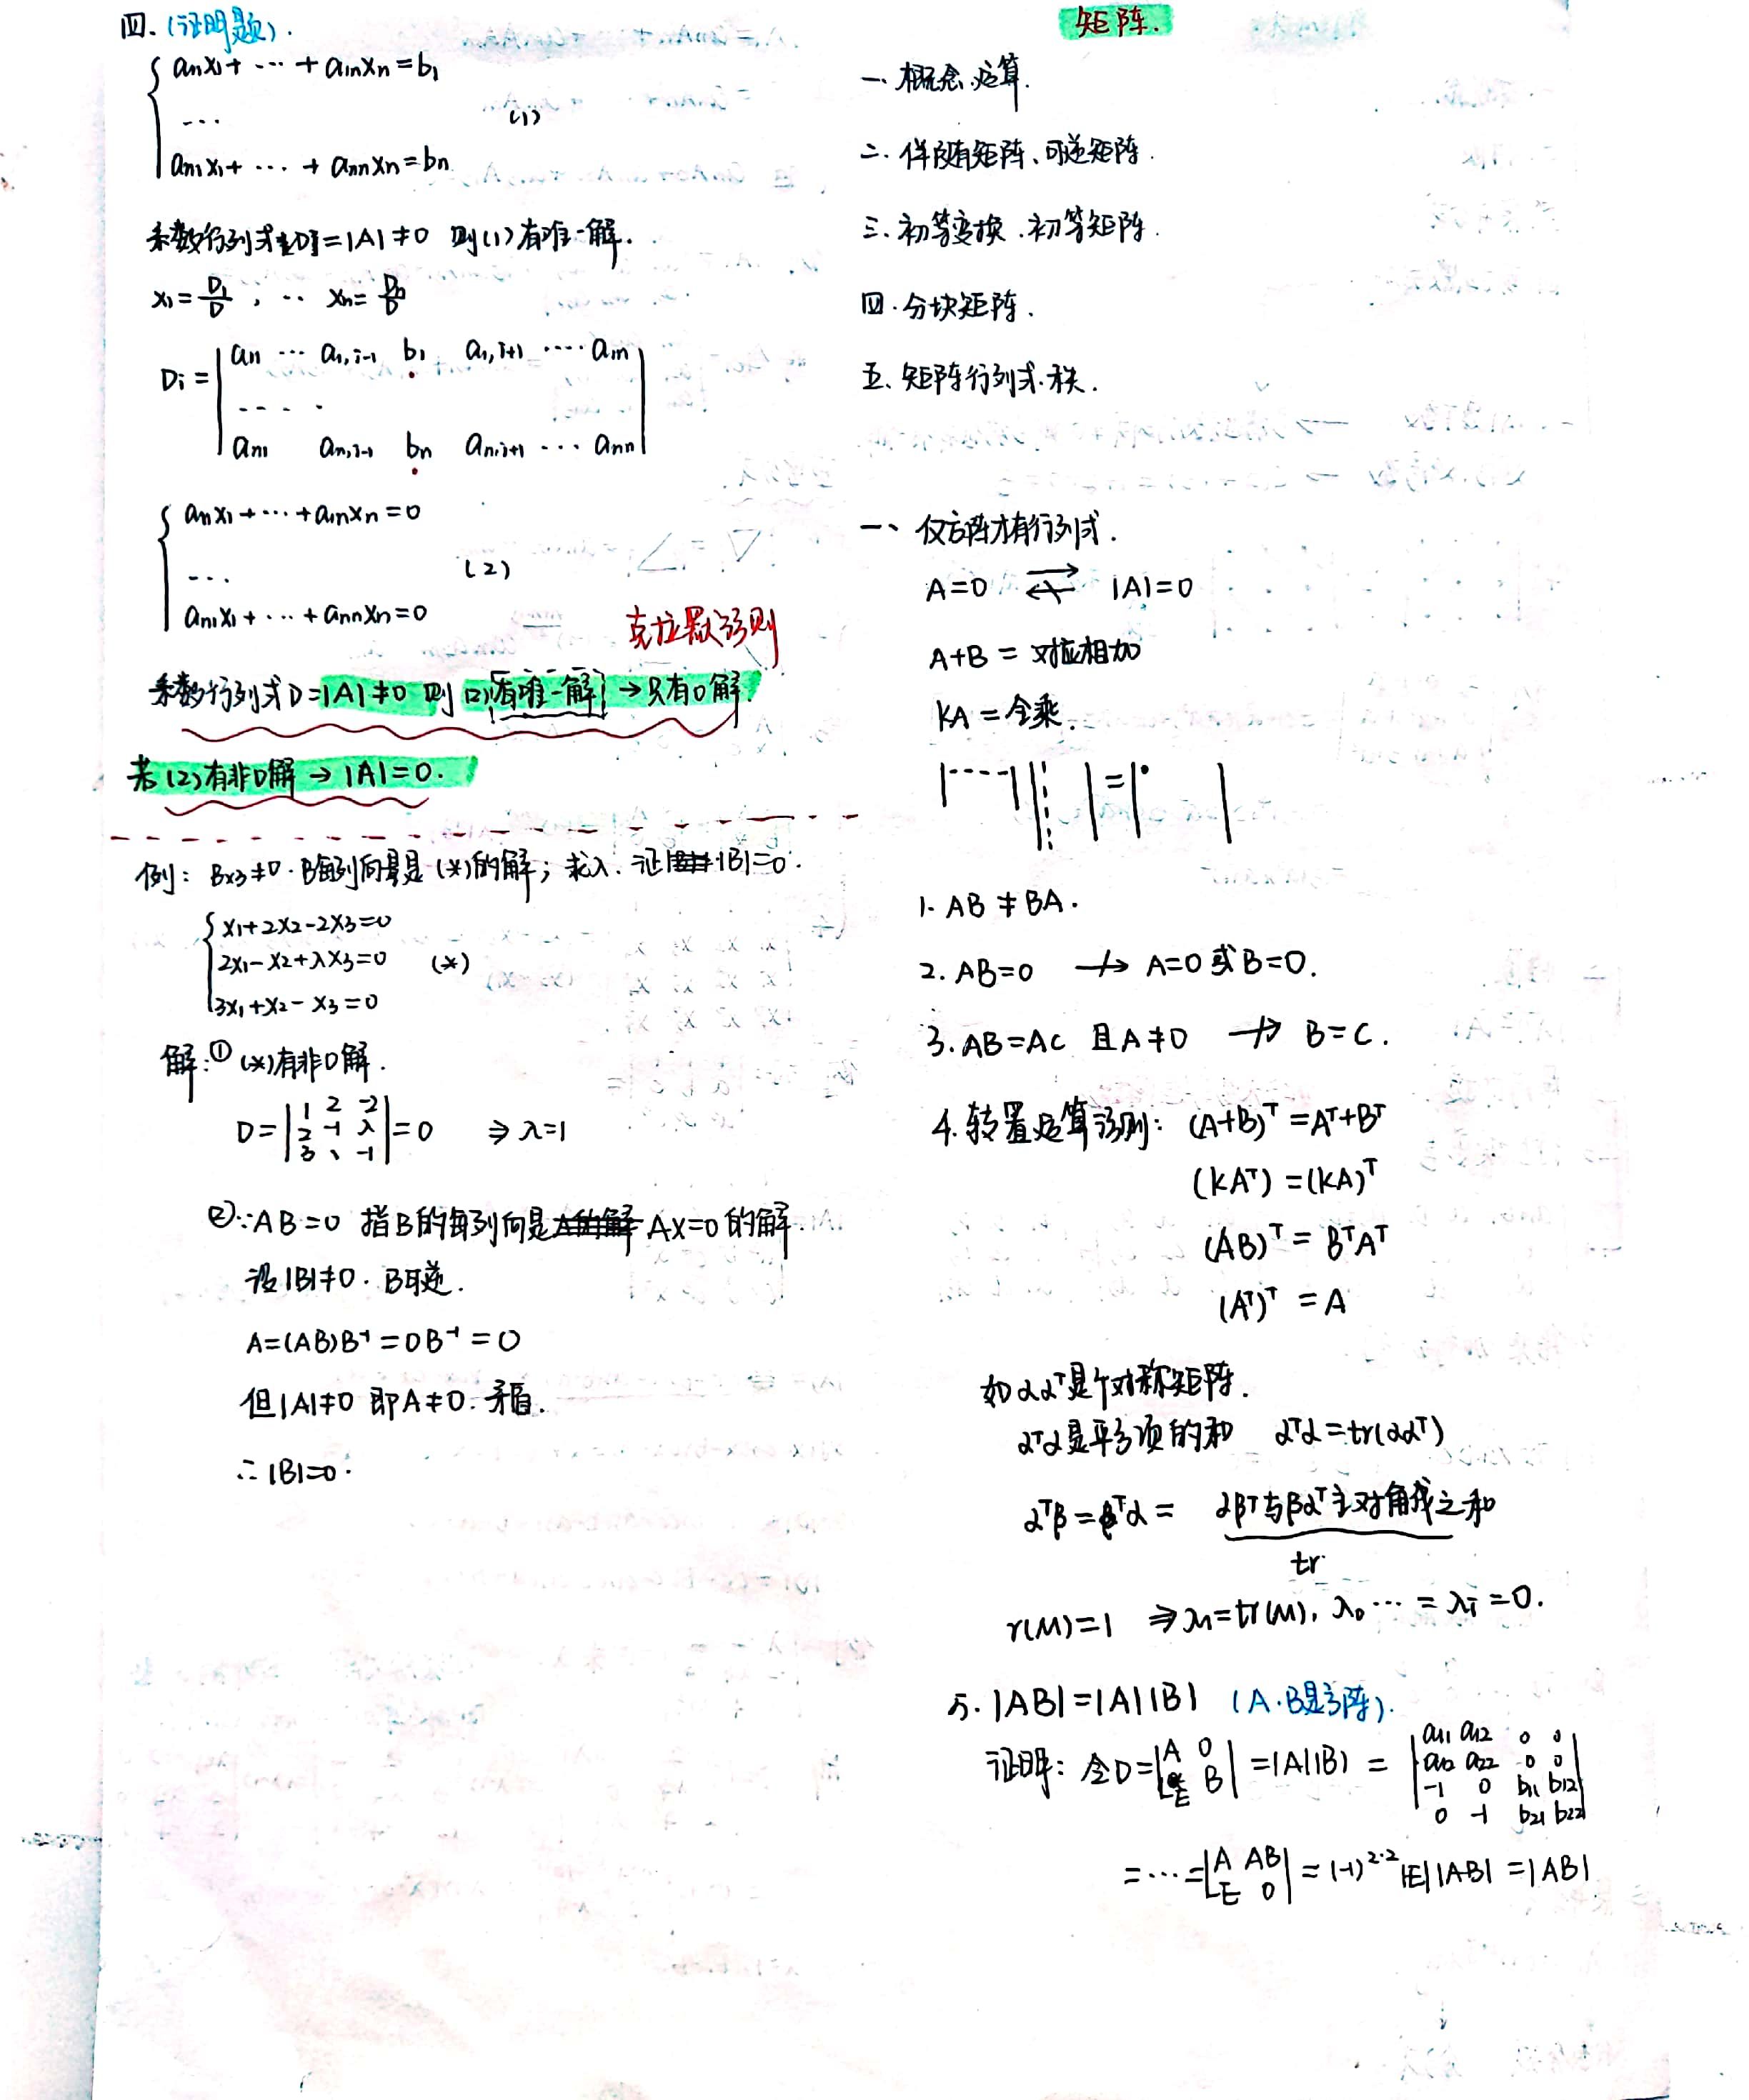 四.(证明题).
a₁₁x₁+ ··· + a₁ₙxₙ=b₁
··· (1)
aₙ₁x₁+ ··· + aₙₙxₙ=bₙ
系数行列式D=|A|≠0 则(1)有唯一解.
x₁=D₁/D , ·· xₙ=Dₙ/D
Dᵢ= | a₁₁ ··· a₁,ᵢ₋₁ b₁ a₁,ᵢ₊₁ ···· a₁ₙ |
- - - -
| aₙ₁ aₙ,ᵢ₋₁ bₙ aₙ,ᵢ₊₁ ··· aₙₙ |
a₁₁x₁+···+a₁ₙxₙ=0
··· (2)
aₙ₁x₁+···+aₙₙxₙ=0
克拉默法则
系数行列式D=|A|≠0 则(2)有唯一解→只有0解.
若(2)有非0解→|A|=0.
例: B₃ₓ₃≠0. B每列向量是(*)的解; 求λ. 证|B|=0.
x₁+2x₂-2x₃=0
2x₁-x₂+λx₃=0 (*)
3x₁+x₂-x₃=0
解:① (*)有非0解.
D= | 1 2 -2 |
| 2 -1 λ | =0 ⇒λ=1
| 3 1 -1 |
②∵AB=0 指B的每列向是 AX=0的解.
设|B|≠0. B可逆.
A=(AB)B⁻¹=0B⁻¹=0
但|A|≠0 即A≠0. 矛盾.
∴|B|=0.
矩阵.
一.概念.运算.
二.伴随矩阵、可逆矩阵.
三.初等变换.初等矩阵.
四.分块矩阵.
五.矩阵行列式.秩.
一、仅方阵才有行列式.
A=0 ⇄ |A|=0
A+B=对应相加
KA=全乘.
1. AB≠BA.
2. AB=0 ↛ A=0或B=0.
3. AB=AC 且A≠0 ↛ B=C.
4. 转置运算法则: (A+B)ᵀ=Aᵀ+Bᵀ
(kAᵀ)=(kA)ᵀ
(AB)ᵀ=BᵀAᵀ
(Aᵀ)ᵀ=A
如ααᵀ是个对称矩阵.
αᵀα是平方项的和 αᵀα=tr(ααᵀ)
αᵀβ=βᵀα= αβᵀ与βαᵀ主对角线之和
tr
r(M)=1 ⇒λ₁=tr(M), λ₀···=λᵢ=0.
5. |AB|=|A||B| (A.B是方阵).
证明: 令D= | A 0 | =|A||B| = | a₁₁ a₁₂ 0 0 |
| -E B | | a₁₂ a₂₂ 0 0 |
| -1 0 b₁₁ b₁₂ |
| 0 -1 b₂₁ b₂₂ |
=···= | A AB | =(-1)²·² |E||AB|=|AB|
| -E 0 |